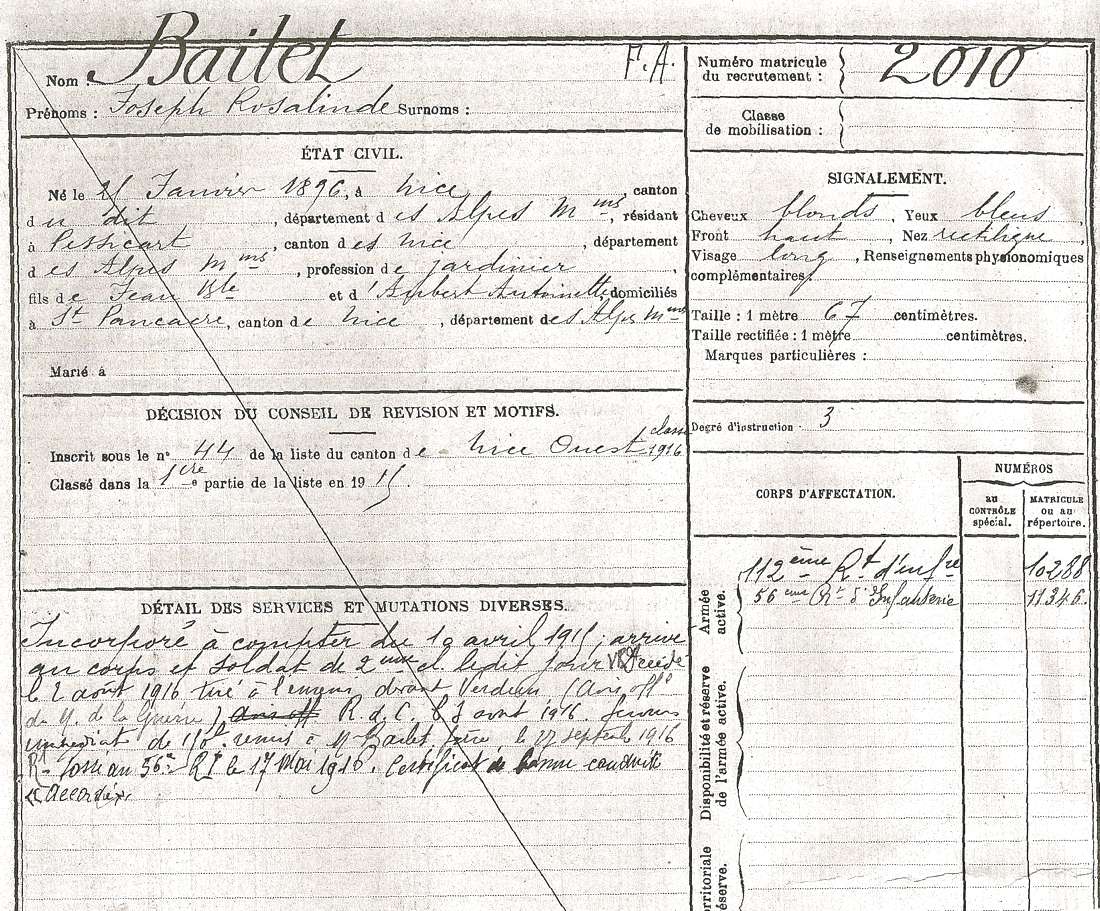 Nom : Bailet F.A.
Prénoms : Joseph Rosalinde Surnoms :
ÉTAT CIVIL.
Né le Janvier 1896, à Nice, canton
du dit, département des Alpes Mmes, résidant
à Pessicart, canton des Nice, département
des Alpes Mmes, profession de jardinier,
fils de Jean Bte et d'Aubert Antoinette, domiciliés
à St Pancacre, canton de Nice, département des Alpes Mmes
Marié à
DÉCISION DU CONSEIL DE REVISION ET MOTIFS.
Inscrit sous le no 44 de la liste du canton de Nice Ouest classe 1916
Classé dans la 1ère partie de la liste en 1915.
DÉTAIL DES SERVICES ET MUTATIONS DIVERSES.
Incorporé à compter du avril 1915, arrivé
au corps et soldat de 2me cl ledit jour Décédé
le 2 août 1916 tué à l'ennemi devant Verdun (Avis offel
du M. de la Guerre) Avis off R.d.C. août 1916. Secours
immédiat de remis à M Bailet, père, le 27 septemb 1916
Rt Passé au 56e RI le 17 mai 1916. Certificat de bonne conduite
"Accordé".
Numéro matricule
du recrutement : 2010
Classe
de mobilisation :
SIGNALEMENT.
Cheveux blonds, Yeux bleus
Front haut, Nez rectiligne,
Visage long, Renseignements physionomiques
complémentaires :
Taille : 1 mètre 67 centimètres.
Taille rectifiée : 1 mètre centimètres.
Marques particulières :
Degré d'instruction 3
CORPS D'AFFECTATION.
NUMÉROS
au
CONTRÔLE
spécial.
MATRICULE
ou au
répertoire.
Armée
active.
112ème Rt d'Infie 10288
56eme Rt d'Infanterie 11346.
Disponibilité et réserve
de l'armée active.
rritoriale
éserve.